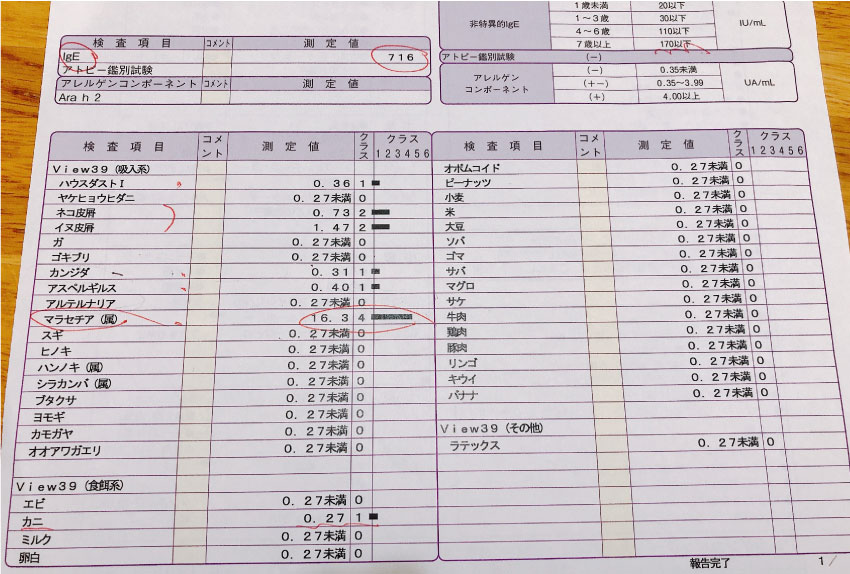 1歳未満 20以下
非特異的IgE 1～3歳 30以下 IU/mL
4～6歳 110以下
7歳以上 170以下
アトピー鑑別試験 (－)
アレルゲンコンポーネント (－) 0.35未満 UA/mL
(+－) 0.35～3.99
(+) 4.00以上
検査項目 コメント 測定値
IgE 716
アトピー鑑別試験
アレルゲンコンポーネント コメント 測定値
Ara h 2
検査項目 コメント 測定値 クラス クラス 1 2 3 4 5 6
View39（吸入系）
ハウスダストⅠ 0.36 1
ヤケヒョウヒダニ 0.27未満 0
ネコ皮屑 0.73 2
イヌ皮屑 1.47 2
ガ 0.27未満 0
ゴキブリ 0.27未満 0
カンジダ 0.31 1
アスペルギルス 0.40 1
アルテルナリア 0.27未満 0
マラセチア（属） 16.3 4
スギ 0.27未満 0
ヒノキ 0.27未満 0
ハンノキ（属） 0.27未満 0
シラカンバ（属） 0.27未満 0
ブタクサ 0.27未満 0
ヨモギ 0.27未満 0
カモガヤ 0.27未満 0
オオアワガエリ 0.27未満 0
View39（食餌系）
エビ 0.27未満 0
カニ 0.27 1
ミルク 0.27未満 0
卵白 0.27未満 0
検査項目 コメント 測定値 クラス クラス 1 2 3 4 5 6
オボムコイド 0.27未満 0
ピーナッツ 0.27未満 0
小麦 0.27未満 0
米 0.27未満 0
大豆 0.27未満 0
ソバ 0.27未満 0
ゴマ 0.27未満 0
サバ 0.27未満 0
マグロ 0.27未満 0
サケ 0.27未満 0
牛肉 0.27未満 0
鶏肉 0.27未満 0
豚肉 0.27未満 0
リンゴ 0.27未満 0
キウイ 0.27未満 0
バナナ 0.27未満 0
View39（その他）
ラテックス 0.27未満 0
報告完了 1/